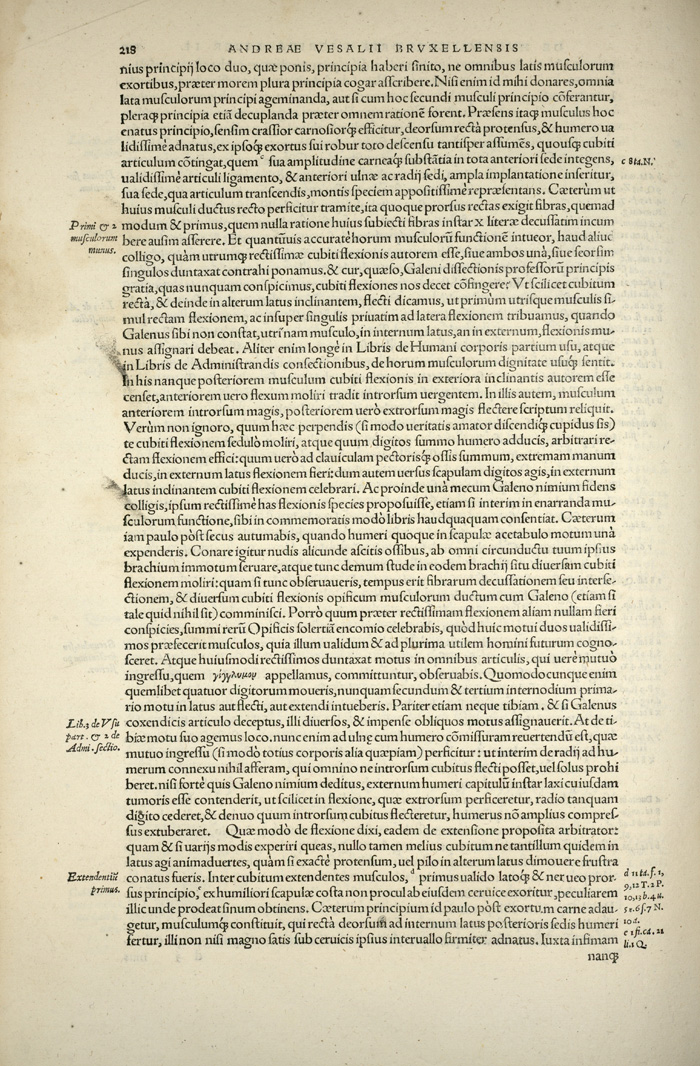 218 ANDREAE VESALII BRVXELLENSIS
nius principij loco duo, quæ ponis, principia haberi sinito, ne omnibus latis musculorum
exortibus, præter morem plura principia cogar asscribere. Nisi enim id mihi donares, omnia
lata musculorum principi ageminanda, aut si cum hoc secundi musculi principio cōferantur,
pleraq́; principia etiā decuplanda præter omnem rationē forent. Præsens itaq́; musculus hoc
enatus principio, sensim crassior carnosiorq́; efficitur, deorsum rectà protensus, & humero ua
lidissimè adnatus, ex ipsoq́; exortus sui robur toto descensu tantisper assumēs, quousq́; cubiti
articulum cōtingat, quem c sua amplitudine carneaq́; substātia in tota anteriori sede integens,
ualidissimè articuli ligamento, & anteriori ulnæ ac radij sedi, ampla implantatione inseritur,
sua sede, qua articulum transcendis, montis speciem appositissimè repræsentans. Cæterùm ut
huius musculi ductus recto perficitur tramite, ita quoque prorsus rectas exigit fibras, quemad
modum & primus, quem nulla ratione huius subiecti fibras instar x literæ decussatim incum
bere ausim asserere. Et quantūuis accuratè horum musculorū functionē intueor, haud aliuc
colligo, quàm utrumq́; rectissimæ cubiti flexionis autorem esse, siue ambos unà, siue seorsim
singulos duntaxat contrahi ponamus. & cur, quæso, Galeni dissectionis professorū principis
gratia, quas nunquam conspicimus, cubiti flexiones nos decet cōfingere? Vt scilicet cubitum
rectà, & deinde in alterum latus inclinantem, flecti dicamus, ut primùm utrisque musculis si-
mul rectam flexionem, ac insuper singulis priuatim ad latera flexionem tribuamus, quando
Galenus sibi non constat, utri nam musculo, in internum latus, an in externum, flexionis mu-
nus assignari debeat. Aliter enim longè in Libris de Humani corporis partium usu, atque
in Libris de Administrandis consectionibus, de horum musculorum dignitate usuq́; sentit.
In his nanque posteriorem musculum cubiti flexionis in exteriora inclinantis autorem esse
censet, anteriorem uero flexum moliri tradit introrsum uergentem. In illis autem, musculum
anteriorem introrsum magis, posteriorem uerò extrorsum magis flectere scriptum reliquit.
Verùm non ignoro, quum hæc perpendis (si modo ueritatis amator discendiq́; cupidus sis)
te cubiti flexionem sedulò moliri, atque quum digitos summo humero adducis, arbitrari re-
ctam flexionem effici: quum uerò ad clauiculam pectorisq́; ossis summum, extremam manum
ducis, in externum latus flexionem fieri: dum autem uersus scapulam digitos agis, in externum
latus inclinantem cubiti flexionem celebrari. Ac proinde unà mecum Galeno nimium fidens
colligis, ipsum rectissimè has flexionis species proposuisse, etiam si interim in enarranda mu-
sculorum functione, sibi in commemoratis modò libris haudquaquam consentiat. Cæterum
iam paulo pòst secus autumabis, quando humeri quoque in scapulæ acetabulo motum unà
expenderis. Conare igitur nudis alicunde ascitis ossibus, ab omni circunductu tuum ipsius
brachium immotum seruare, atque tunc demum stude in eodem brachij situ diuersam cubiti
flexionem moliri: quam si tunc obseruaueris, tempus erit fibrarum decussationem seu interse-
ctionem, & diuersum cubiti flexionis opificum musculorum ductum cum Galeno (etiam si
tale quid nihil sit) comminisci. Porrò quum præter rectissimam flexionem aliam nullam fieri
conspicies, summi rerū Opificis solertiā encomio celebrabis, quòd huic motui duos ualidissi-
mos præfecerit musculos, quia illum ualidum & ad plurima utilem homini futurum cogno-
sceret. Atque huiusmodi rectissimos duntaxat motus in omnibus articulis, qui uerè mutuo
ingressu, quem γίγγλυμον appellamus, committuntur, obseruabis. Quomodocunque enim
quemlibet quatuor digitorum moueris, nunquam secundum & tertium internodium prima-
rio motu in latus aut flecti, aut extendi intueberis. Pariter etiam neque tibiam. & si Galenus
coxendicis articulo deceptus, illi diuersos, & impense obliquos motus assignauerit. At de ti-
biæ motu suo agemus loco. nunc enim ad ulnę cum humero cōmissuram reuertendū est, quæ
mutuo ingressu (si modò totius corporis alia quæpiam) perficitur: ut interim de radij ad hu-
merum connexu nihil afferam, qui omnino ne introrsum cubitus flecti posset, uel solus prohi
beret. nisi fortè quis Galeno nimium deditus, externum humeri capitulū instar laxi cuiusdam
tumoris esse contenderit, ut scilicet in flexione, quæ extrorsum perficeretur, radio tanquam
digito cederet, & denuo quum introrsum cubitus flecteretur, humerus nō amplius compres-
sus extuberaret. Quæ modò de flexione dixi, eadem de extensione proposita arbitrator:
quam & si uarijs modis experiri queas, nullo tamen melius cubitum ne tantillum quidem in
latus agi animaduertes, quàm si exactè protensum, uel pilo in alterum latus dimouere frustra
conatus fueris. Inter cubitum extendentes musculos, d primus ualido latoq́; & nerueo pror-
sus principio, e ex humiliori scapulæ costa non procul ab eiusdem ceruice exoritur, peculiarem
illic unde prodeat sinum obtinens. Cæterum principium id paulo pòst exortum carne adau-
getur, musculumq́; constituit, qui rectà deorsum ad internum latus posterioris sedis humeri
fertur, illi non nisi magno satis sub ceruicis ipsius interuallo firmiter adnatus. Iuxta infimam
nanq́;
c 8 ta. N.
Primi & 2
musculorum
munus.
Lib. 3 de Vsu
part. & 2 de
Admi. sectio.
Extendentiū
primus.
d 11 ta. f. 1,
9, 12 T. 2 P.
10, 13 h. 4 u.
10 d.
li. 1 Q.